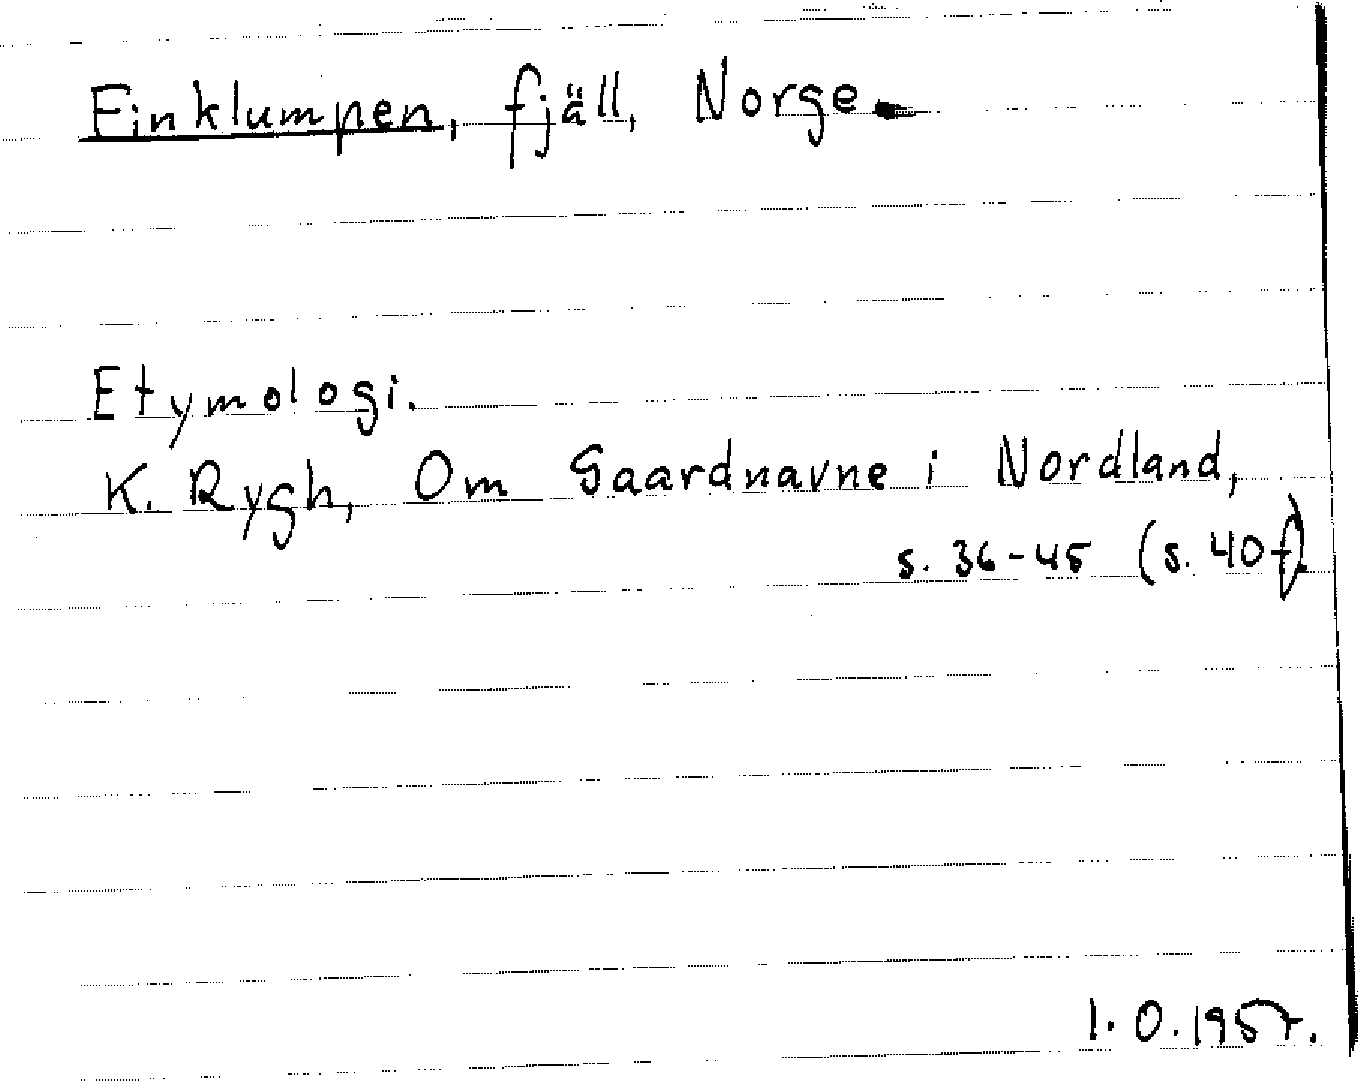 Finklumpen, fjäll, Norge.
Etymologi.
K. Rygh, Om Gaardnavne i Nordland,
s. 36-45 (s. 40 f)
I. O. 1957.